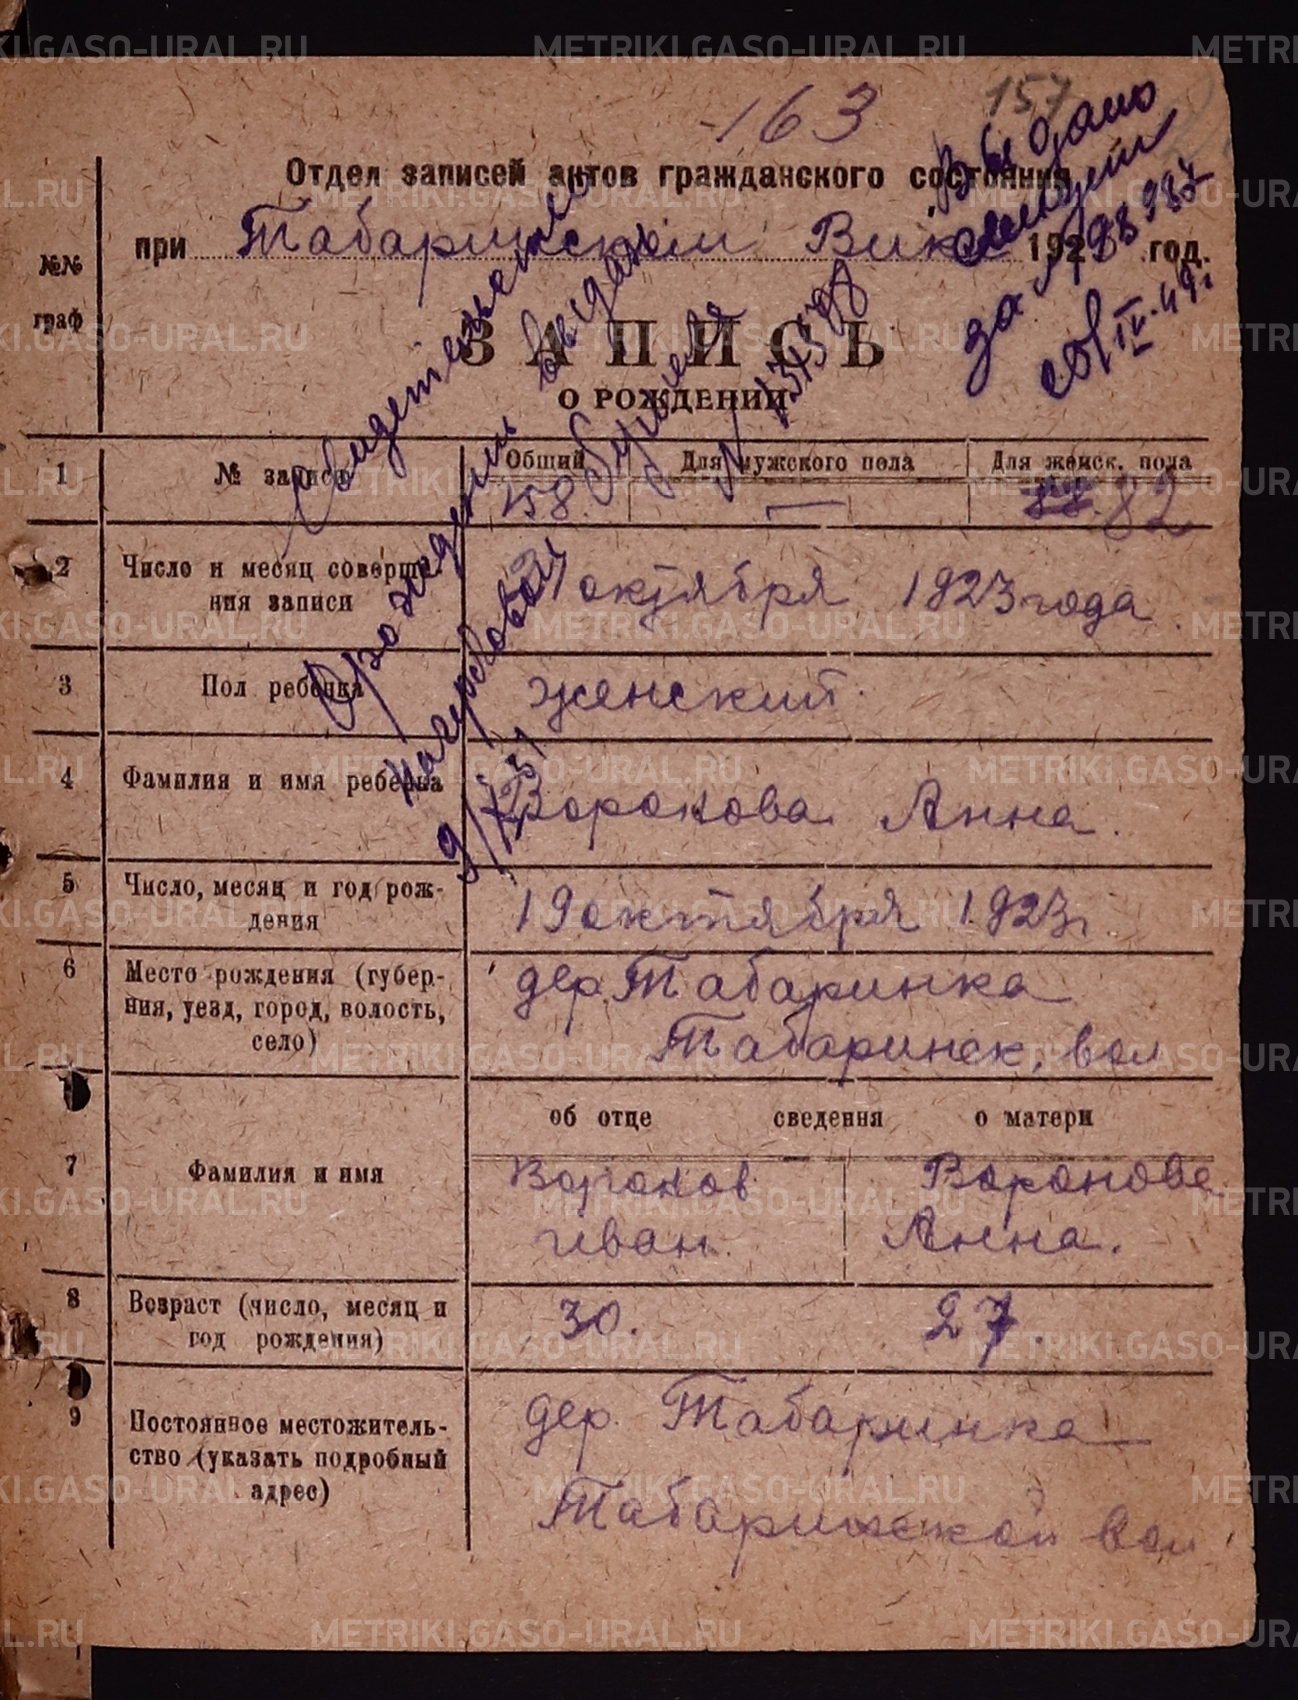 METRIKI.GASO-URAL.RU
163
157
Отдел записей актов гражданского состояния
при Табаринском Вике 192 год.
Выдано
за № 
IV. 49 г
Свидетельство
о рождении выдано
№№
граф
ЗАПИСЬ
О РОЖДЕНИИ
1 № записи
Общий Для мужского пола Для женск. пола
158. — 82
2 Число и месяц соверше-
ния записи
21 октября 1923 года
3 Пол ребенка женский.
4 Фамилия и имя ребенка Воронова Анна.
5 Число, месяц и год рож-
дения
19 октября 1923 г.
6 Место рождения (губер-
ния, уезд, город, волость,
село)
дер. Табаринка
Табаринск. вол
об отце сведения о матери
7 Фамилия и имя
Воронов Воронова
Иван. Анна.
8 Возраст (число, месяц и
год рождения)
30. 27.
9 Постоянное местожитель-
ство (указать подробный
адрес)
дер. Табаринка
Табаринской вол